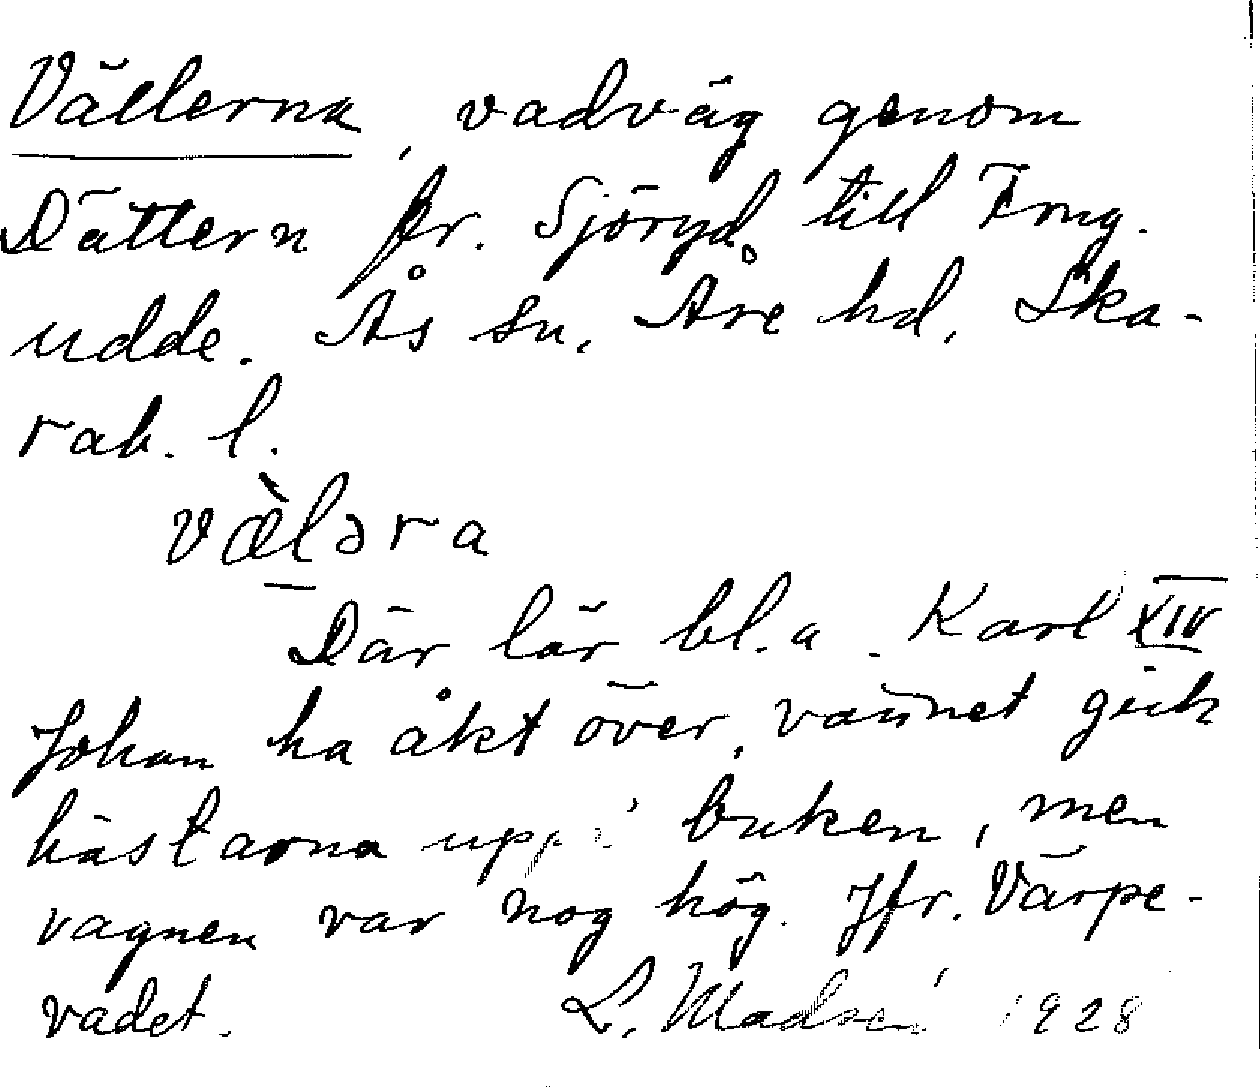 Vällerna, vadväg genom
Dättern fr. Sjöryd till Frug.
udde. Ås sn, Åse hd, Ska-
rab. l.
væ̀ləra
Där lär bl.a. Karl XIV
Johan ha åkt över, vattnet gick
hästarna upp i buken, men
vagnen var nog hög. Jfr. Värpe-
vadet. L. Madsén 1928